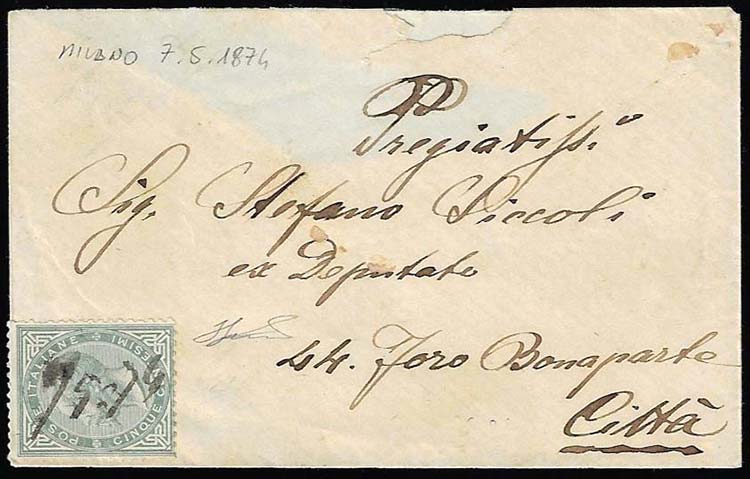 MILANO 7.5.1874
Pregiatissi
Sig. Stefano Piccoli
ex Deputato
44. Foro Bonaparte
Città
POSTE ITALIANE
CINQUE CENTESIMI